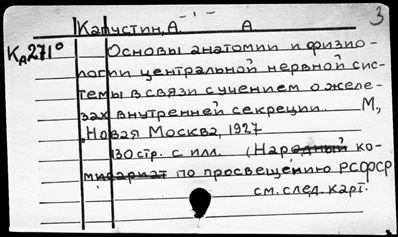 3
Капустин, А. А.
КА271° Основы анатомии и физио-
логии центральной нервной сис-
темы в связи с учением о желе-
зах внутренней секреции. М,
Новая Москва, 1927
130 стр. с илл. (Народный ко-
мисариат по просвещению РСФСР
см. след. карт.